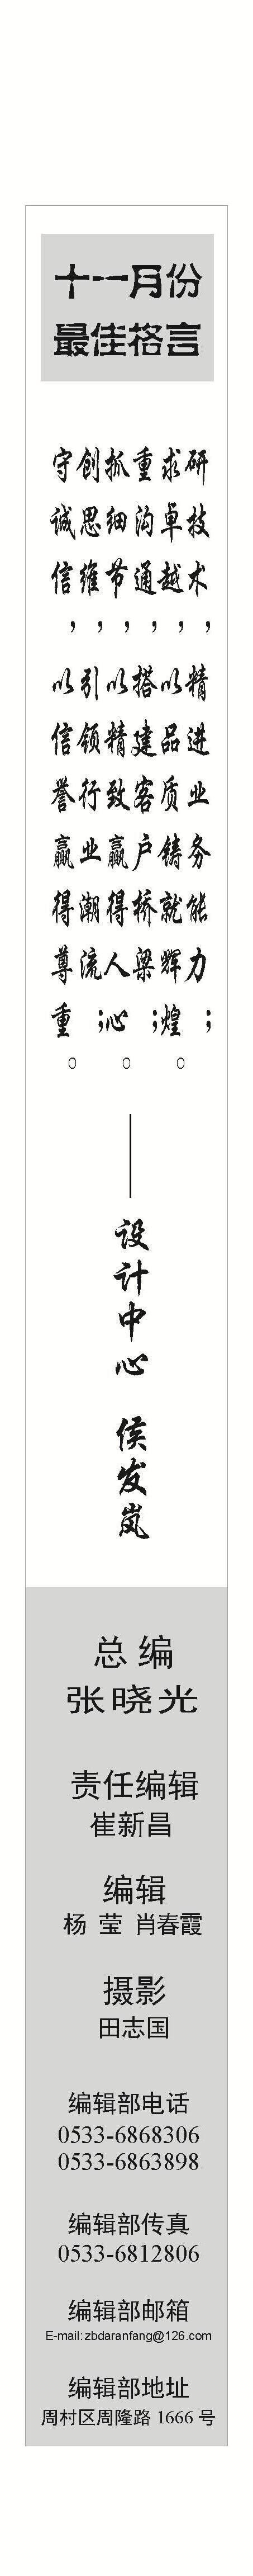 十一月份
最佳格言
研技术，精进业务能力；
求卓越，以品质铸就辉煌。
重沟通，搭建客户桥梁；
抓细节，以精致赢得人心。
创思维，引领行业潮流；
守诚信，以信誉赢得尊重。
——设计中心 侯发岚
总编
张晓光
责任编辑
崔新昌
编辑
杨 莹 肖春霞
摄影
田志国
编辑部电话
0533-6868306
0533-6863898
编辑部传真
0533-6812806
编辑部邮箱
E-mail:zbdaranfang@126.com
编辑部地址
周村区周隆路 1666 号